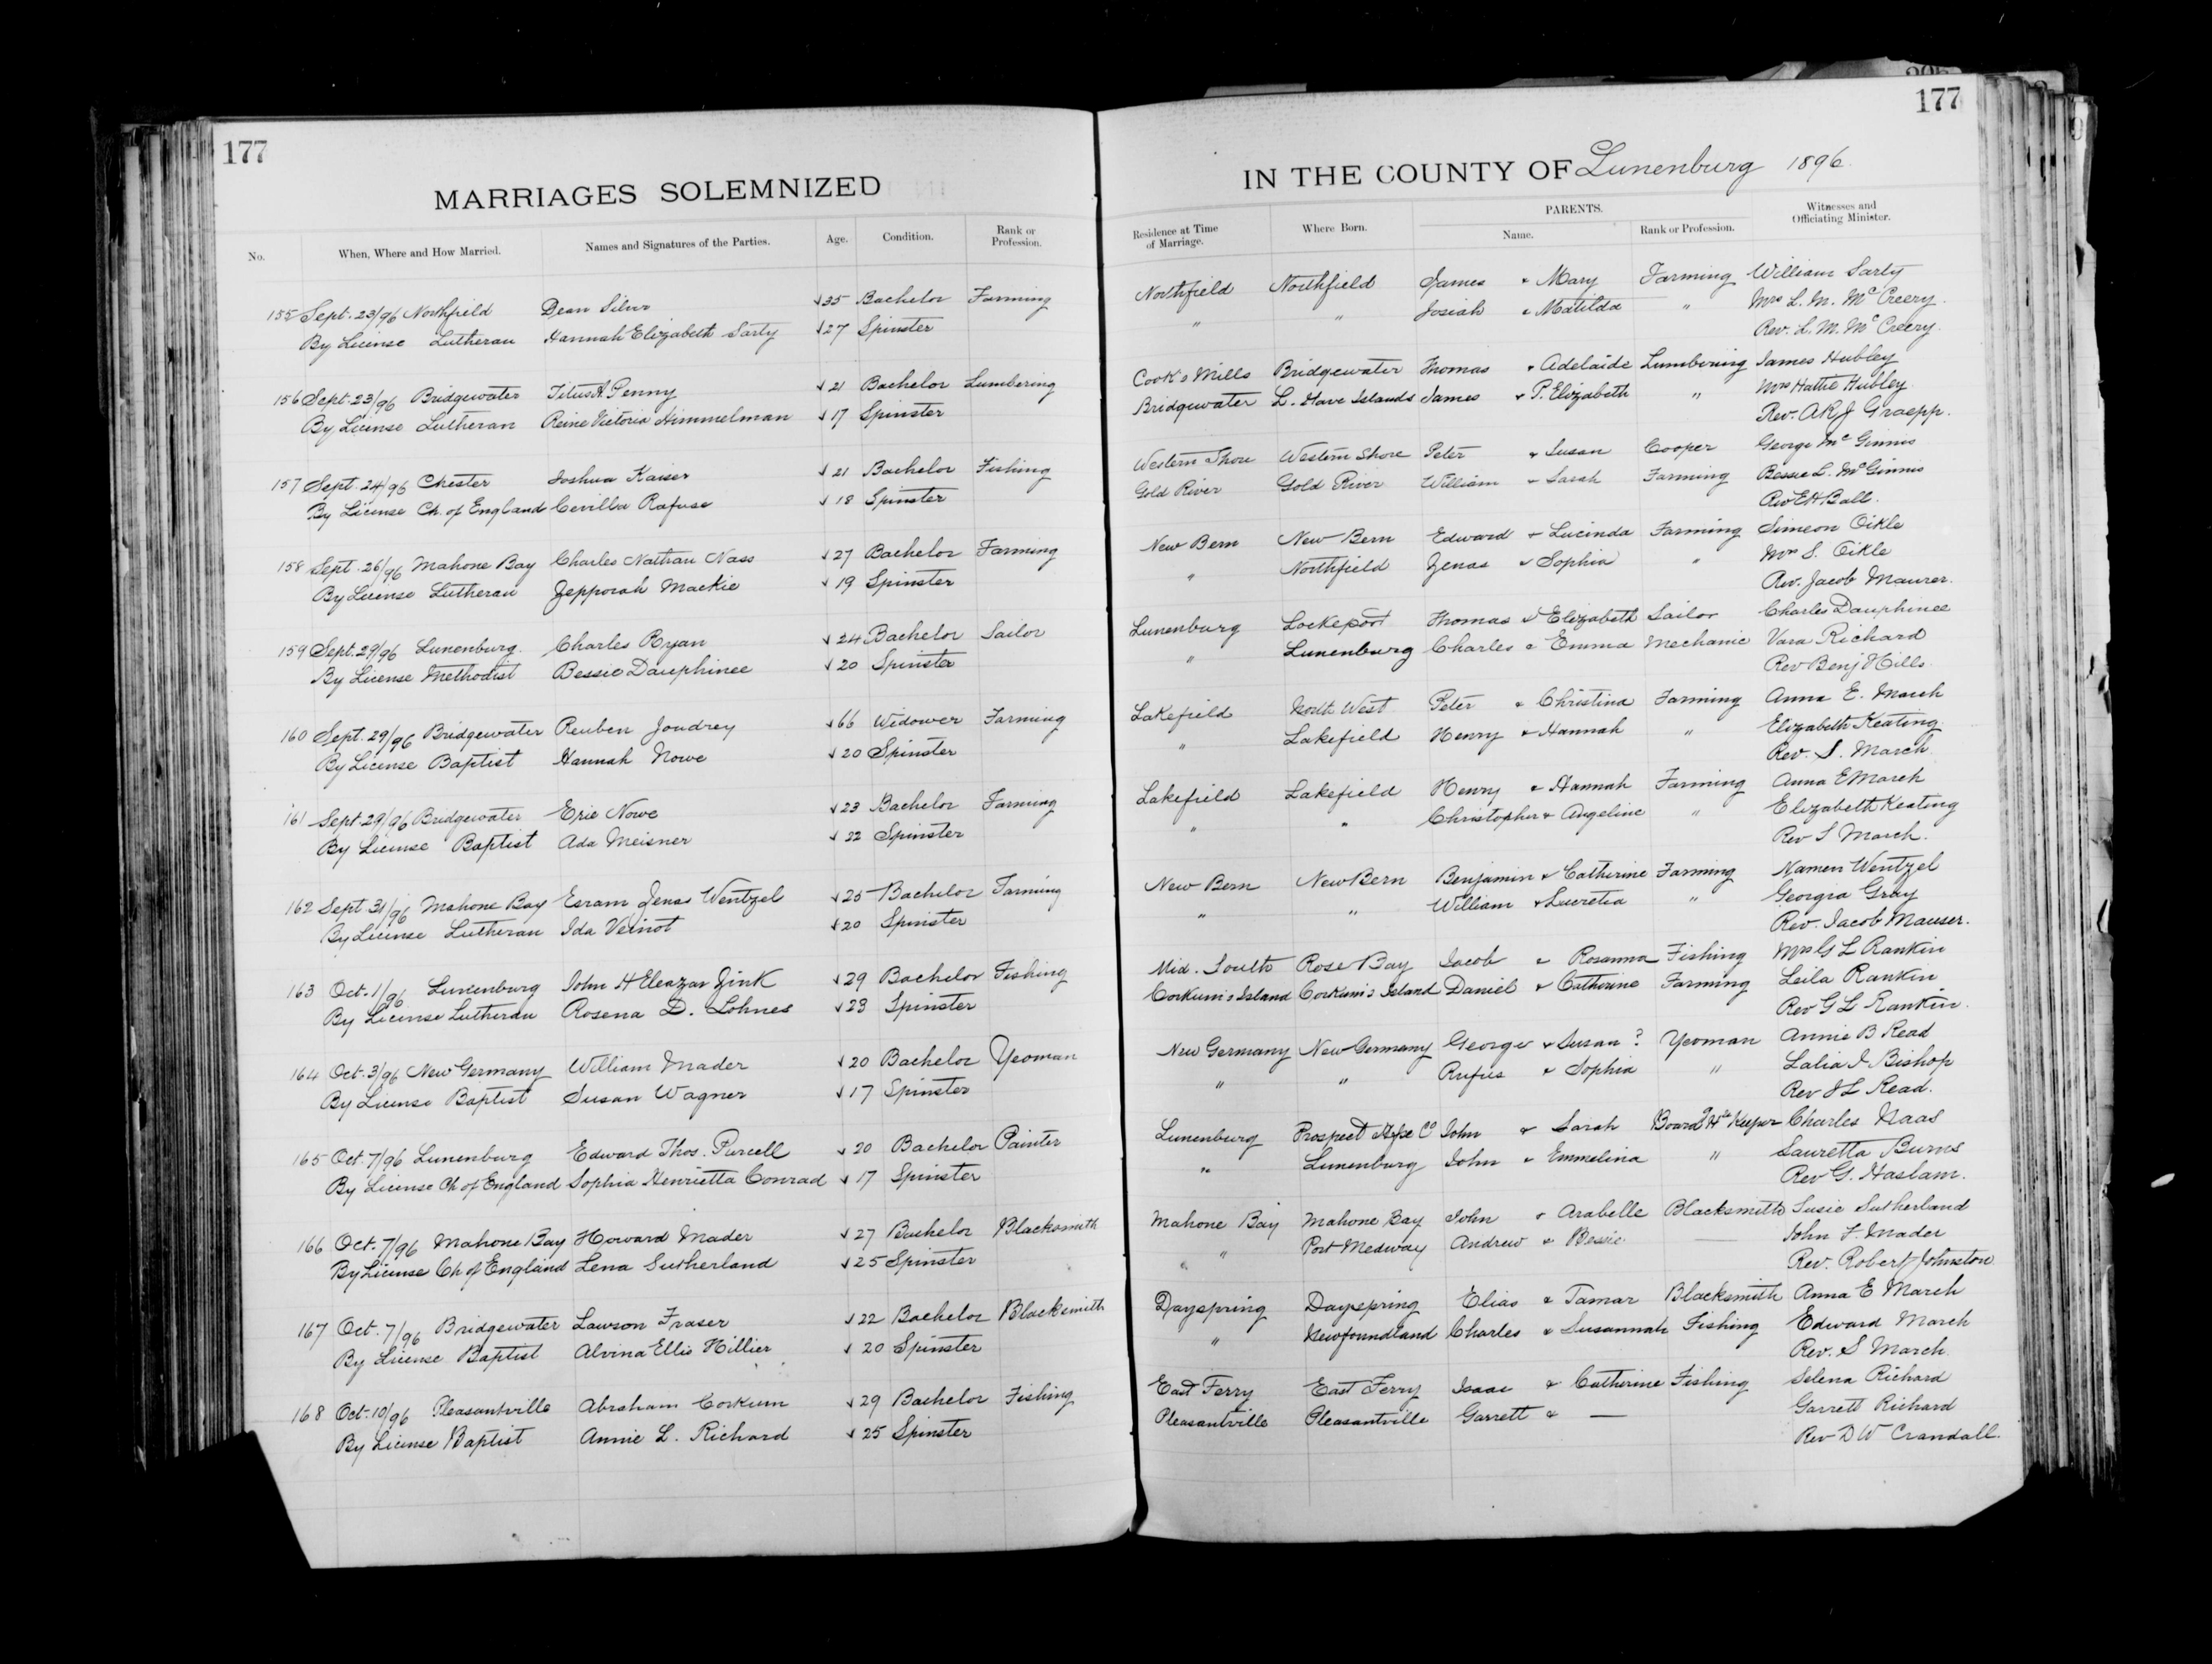 177
MARRIAGES SOLEMNIZED
No. When, Where and How Married. Names and Signatures of the Parties. Age. Condition. Rank or Profession.
155 Sept. 23/96 Northfield Dean Silver 35 Bachelor Farming
By License Lutheran Hannah Elizabeth Sarty 27 Spinster
156 Sept. 23/96 Bridgewater Titus A. Penny 21 Bachelor Lumbering
By License Lutheran Reine Victoria Himmelman 17 Spinster
157 Sept. 24/96 Chester Joshua Kaiser 21 Bachelor Fishing
By License Ch. of England Cevilla Rafuse 18 Spinster
158 Sept. 26/96 Mahone Bay Charles Nathan Nass 27 Bachelor Farming
By License Lutheran Zepporah Mackie 19 Spinster
159 Sept. 29/96 Lunenburg. Charles Ryan 24 Bachelor Sailor
By License Methodist Bessie Dauphinee 20 Spinster
160 Sept. 29/96 Bridgewater Reuben Joudrey 66 Widower Farming
By License Baptist Hannah Nowe 20 Spinster
161 Sept 29/96 Bridgewater Erie Nowe 23 Bachelor Farming
By License Baptist Ada Meisner 22 Spinster
162 Sept 31/96 Mahone Bay Esram Zenas Wentzel 25 Bachelor Farming
By License Lutheran Ida Veinot 20 Spinster
163 Oct. 1/96 Lunenburg John H Eleazar Zink 29 Bachelor Fishing
By License Lutheran Rosena D. Lohnes 23 Spinster
164 Oct. 3/96 New Germany William Mader 20 Bachelor Yeoman
By License Baptist Susan Wagner 17 Spinster
165 Oct. 7/96 Lunenburg Edward Thos. Purcell 20 Bachelor Painter
By License Ch of England Sophia Henrietta Conrad 17 Spinster
166 Oct. 7/96 Mahone Bay Howard Mader 27 Bachelor Blacksmith
By License Ch of England Lena Sutherland 25 Spinster
167 Oct. 7/96 Bridgewater Lawson Fraser 22 Bachelor Blacksmith
By License Baptist Alvina Ellis Hillier 20 Spinster
168 Oct. 10/96 Pleasantville Abraham Corkum 29 Bachelor Fishing
By License Baptist Annie L. Richard 25 Spinster
177
IN THE COUNTY OF Lunenburg 1896.
Residence at Time of Marriage. Where Born. PARENTS. Name. Rank or Profession. Witnesses and Officiating Minister.
Northfield Northfield James & Mary Farming William Sarty
" " Josiah & Matilda " Mrs L. M. McCreery.
Rev. L. M. McCreery.
Cook's Mills Bridgewater Thomas & Adelaide Lumbering James Hubley
Bridgewater L. Have Islands James & P. Elizabeth " Mrs Hattie Hubley
Rev. A R J Graepp.
Western Shore Western Shore Peter & Susan Cooper George McGinnis
Gold River Gold River William & Sarah Farming Bessie L. McGinnis
Rev E H Ball.
New Bern New Bern Edward & Lucinda Farming Simeon Oikle
" Northfield Zenas & Sophia " Mrs S. Oikle
Rev. Jacob Maurer.
Lunenburg Lockeport Thomas & Elizabeth Sailor Charles Dauphinee
" Lunenburg Charles & Emma Mechanic Vara Richard
Rev Benj Hills.
Lakefield North West Peter & Christina Farming Anna E. March
" Lakefield Henry & Hannah " Elizabeth Keating
Rev. S. March
Lakefield Lakefield Henry & Hannah Farming Anna E March
" " Christopher & Angeline " Elizabeth Keating
Rev S March.
New Bern New Bern Benjamin & Catherine Farming Namen Wentzel
" " William & Lucretia " Georgia Gray
Rev. Jacob Mauser.
Mid. South Rose Bay Jacob & Rosanna Fishing Mrs G L Rankin
Corkum's Island Corkum's Island Daniel & Catherine Farming Leila Rankin
Rev G L Rankin.
New Germany New Germany George & Susan ? Yeoman Annie B Read
" " Rufus & Sophia " Lalia I Bishop
Rev J L Read.
Lunenburg Prospect Hfx Co John & Sarah Board Hse Keeper Charles Naas
" Lunenburg John & Emmelina " Lauretta Burns
Rev G. Haslam.
Mahone Bay Mahone Bay John & Arabelle Blacksmith Susie Sutherland
" Port Medway Andrew & Bessie — John F. Mader
" Rev. Robert Johnston
Dayspring Dayspring Elias & Tamar Blacksmith Anna E March
" Newfoundland Charles & Susannah Fishing Edward March
Rev. S March
East Ferry East Ferry Isaac & Catherine Fishing Selena Richard
Pleasantville Pleasantville Garrett & — Garrett Richard
Rev D W Crandall.